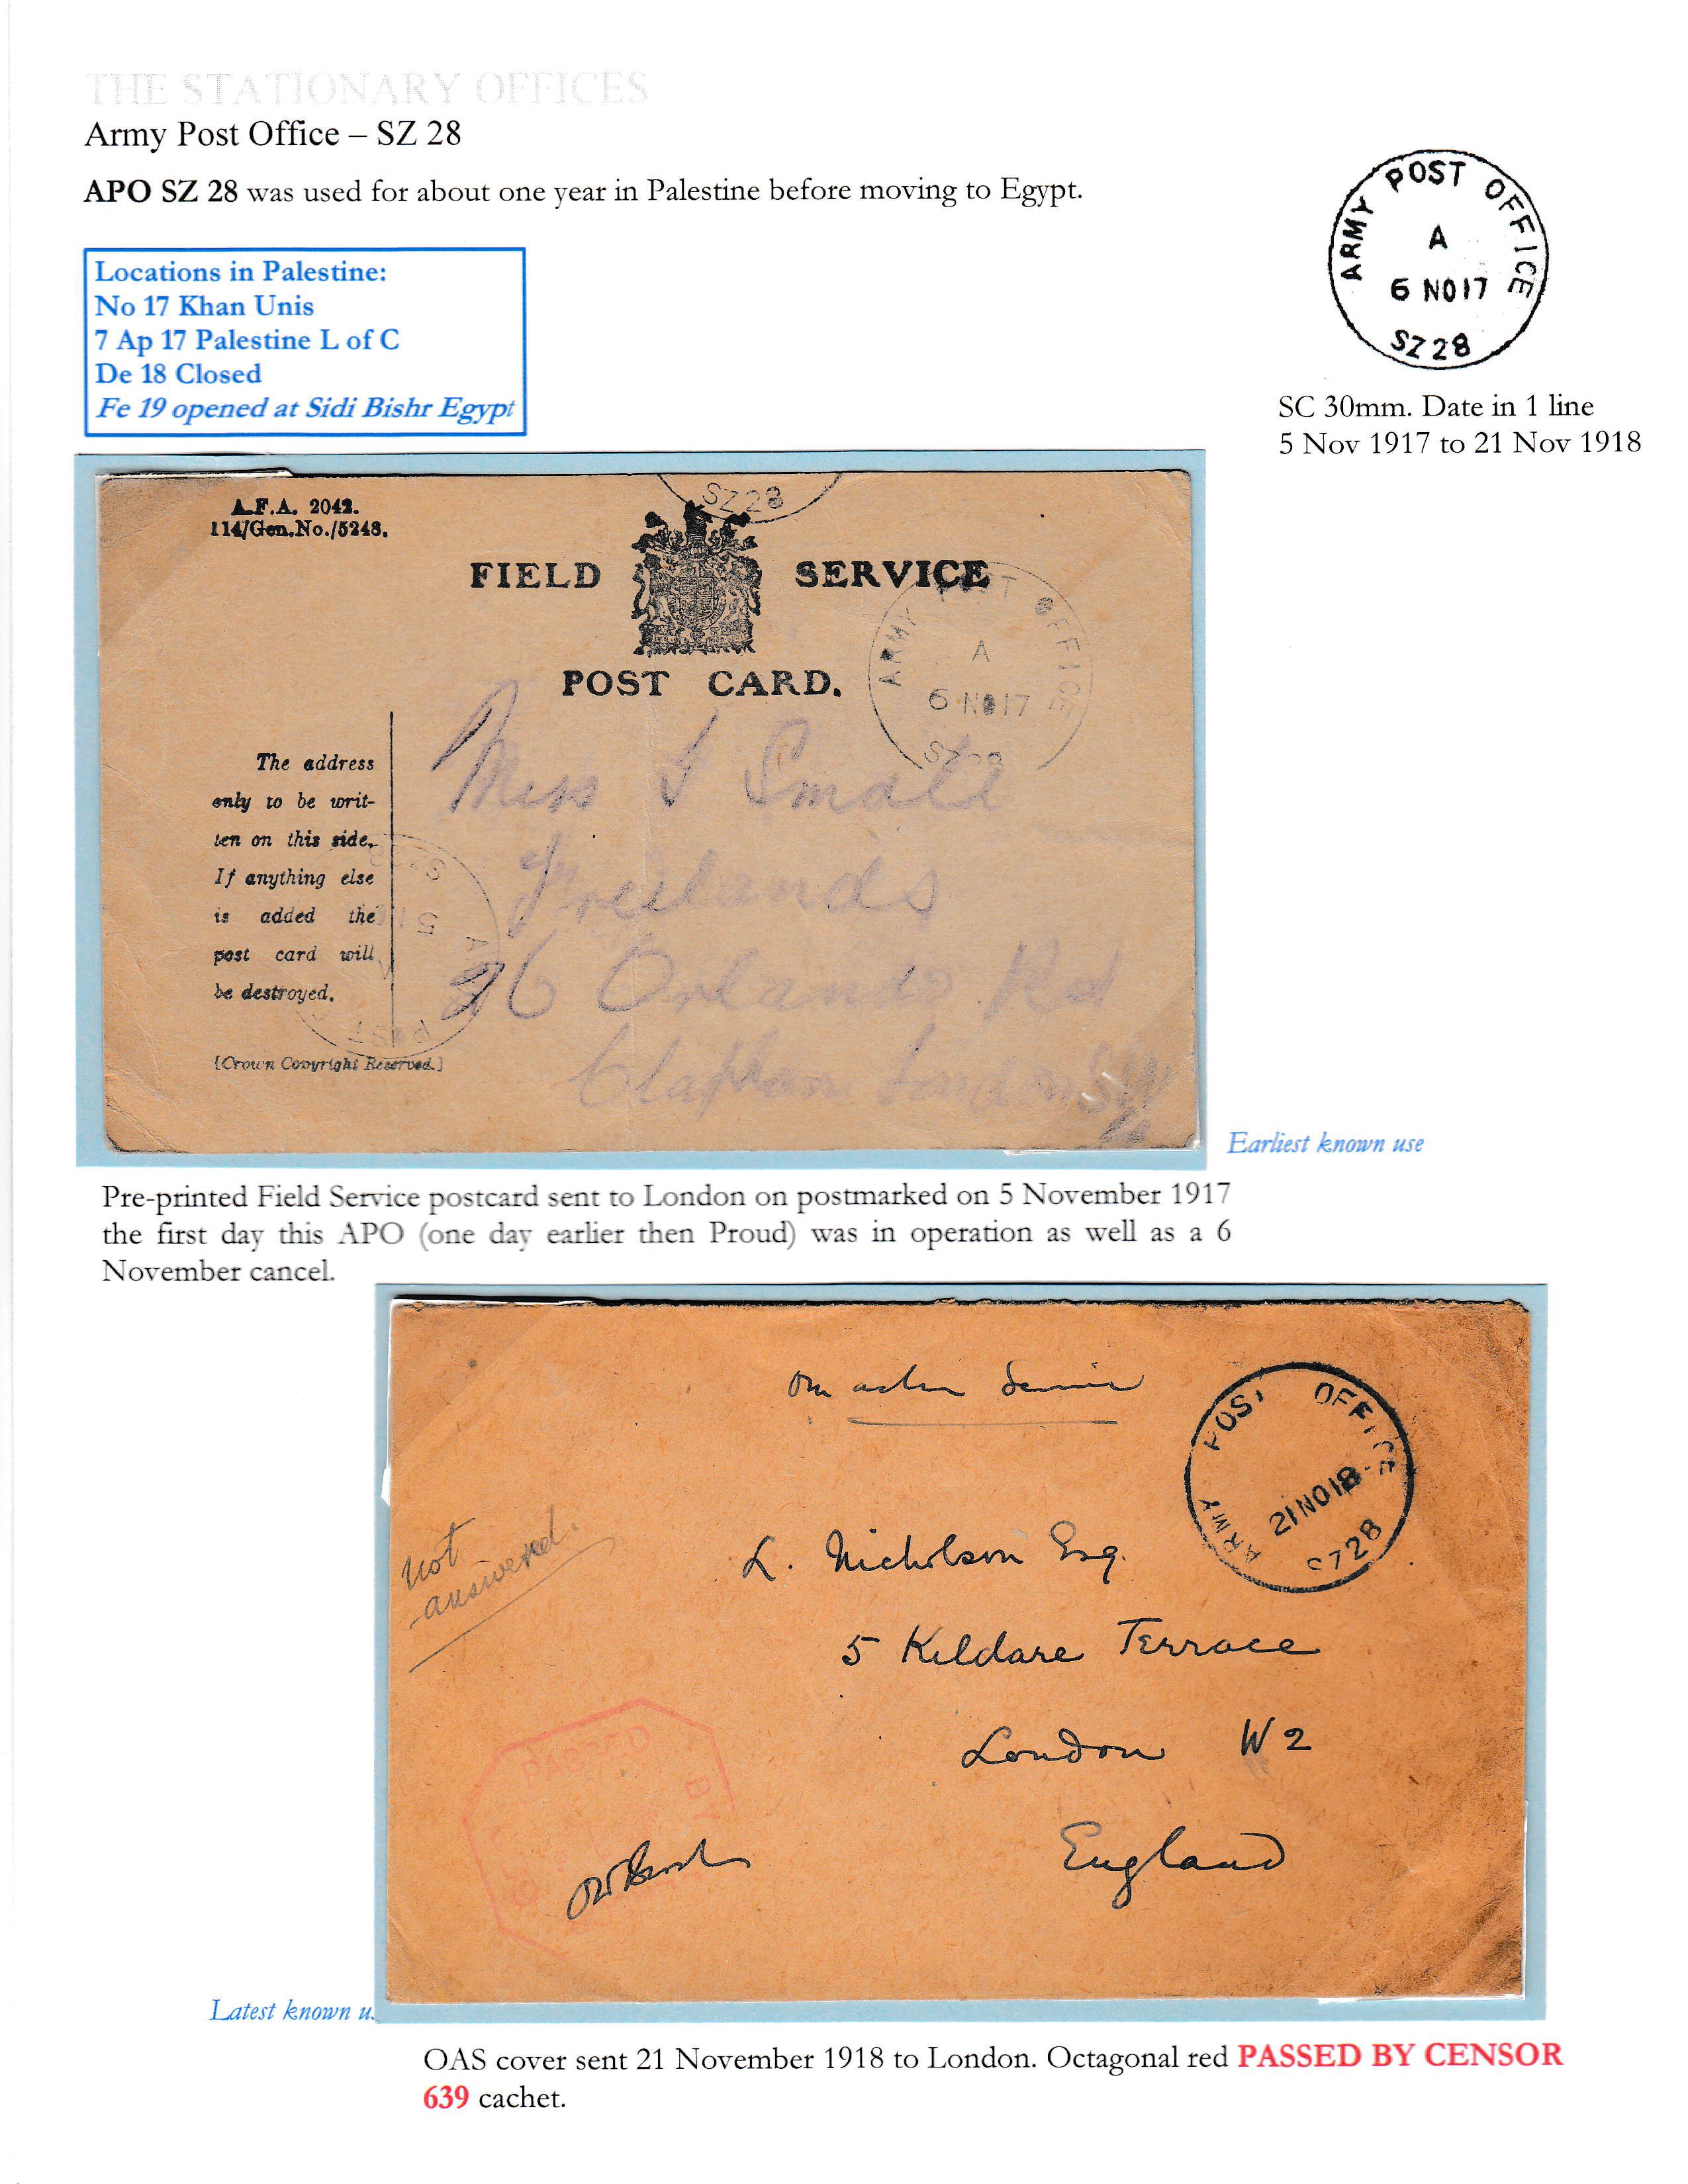 THE STATIONARY OFFICES
Army Post Office – SZ 28
APO SZ 28 was used for about one year in Palestine before moving to Egypt.
ARMY POST OFFICE
A
6 NO 17
SZ 28
SC 30mm. Date in 1 line
5 Nov 1917 to 21 Nov 1918
Locations in Palestine:
No 17 Khan Unis
7 Ap 17 Palestine L of C
De 18 Closed
Fe 19 opened at Sidi Bishr Egypt
A.F.A. 2042.
114/Gen.No./5248.
SZ 28
FIELD SERVICE
POST CARD.
ARMY POST OFFICE
A
6 NO 17
SZ 28
The address
only to be writ-
ten on this side.
If anything else
is added the
post card will
be destroyed.
[Crown Copyright Reserved.]
Miss I Small
Freelands
26 Orlando Rd
Clapham London SW
Earliest known use
Pre-printed Field Service postcard sent to London on postmarked on 5 November 1917
the first day this APO (one day earlier then Proud) was in operation as well as a 6
November cancel.
On active Service
ARMY POST OFFICE
21 NO 18
SZ 28
not
answered.
L. Nicholson Esq.
5 Kildare Terrace
London W2
England
PASSED BY
Latest known u
OAS cover sent 21 November 1918 to London. Octagonal red PASSED BY CENSOR
639 cachet.